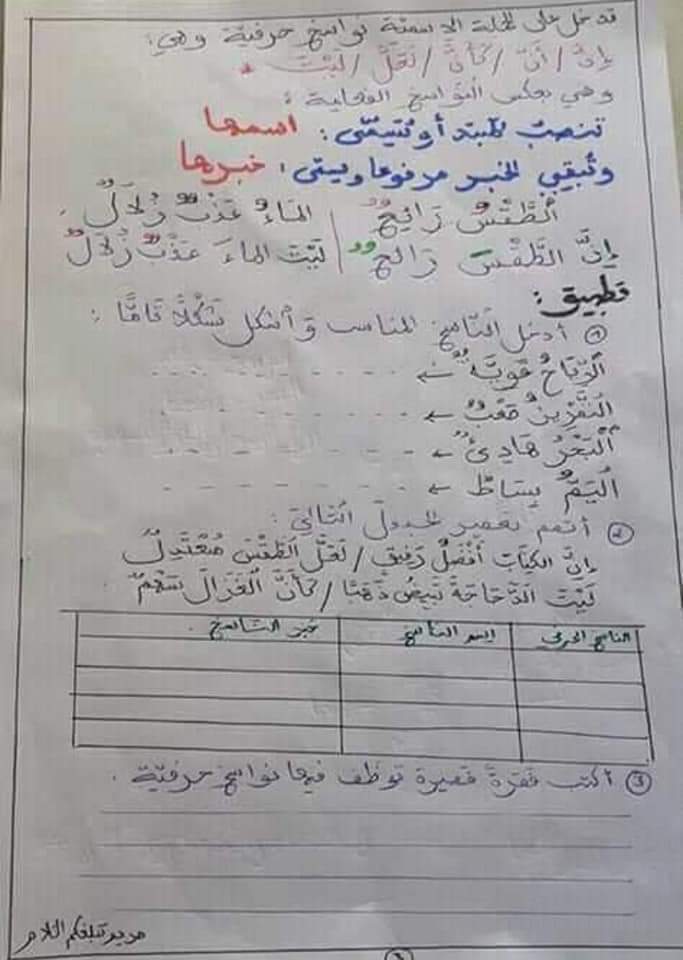 قد تدخل على الجملة الاسمية نواسخ حرفية وهي:
إنّ / أنّ / كأنّ / لعلّ / ليت
وهي بعكس النواسخ الفعلية:
تنصب المبتدأ وتسمّى: اسمها
وتبقي الخبر مرفوعا ويسمّى: خبرها
ألطَّقْسُ رَائِعٌ | الماءُ عَذْبٌ زُلَالٌ.
إنَّ الطَّقْسَ رَائعٌ | لَيْتَ الماءَ عَذْبٌ زُلَالٌ
تطبيق:
① أدخل النّاسخ المناسب وَأشكل شَكْلًا تَامًّا:
ألرِّيَاحُ قَوِيَّةٌ ←
التَّمْرِينُ صَعْبٌ ←
ألْبَحْرُ هَادِئٌ ←
اليَمُّ بِسَاطٌ ←
② أتمم تعمير الجدول التالي:
إنّ الكِتَابَ أَفْضَلُ رَفِيقٍ / لَعَلَّ الطَّقْسَ مُعْتَدِلٌ
لَيْتَ الدَّجَاجَةَ تَبِيضُ ذَهَبًا / كَأَنَّ الْغَزَالَ سَهْمٌ
الناسخ الحرفي | اسم الناسخ | خبر الناسخ
③ أكتب فقرةً قصيرة توظف فيها نواسخ حرفيّة.